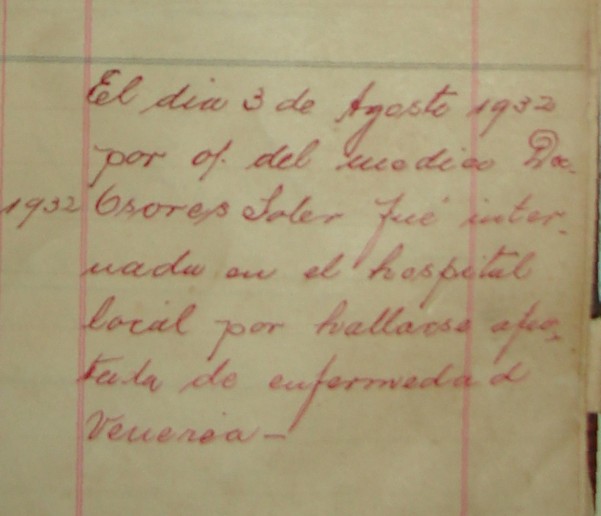 El dia 3 de Agosto 1932
por of. del medico Doc.
1932 Osores Soler fué inter-
nada en el hospital
local por hallarse afec-
tada de enfermedad
Venerea -